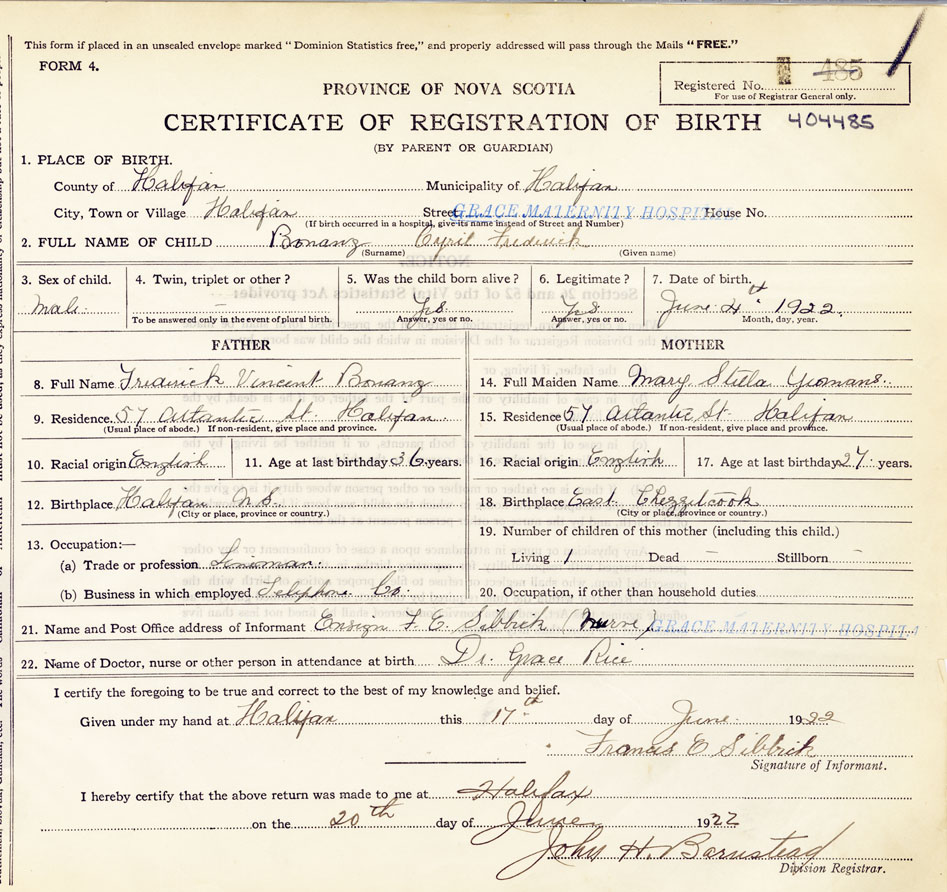 This form if placed in an unsealed envelope marked "Dominion Statistics free," and properly addressed will pass through the Mails "FREE."
FORM 4.
Registered No. 485
For use of Registrar General only.
PROVINCE OF NOVA SCOTIA
CERTIFICATE OF REGISTRATION OF BIRTH 404485
(BY PARENT OR GUARDIAN)
1. PLACE OF BIRTH.
County of Halifax Municipality of Halifax
City, Town or Village Halifax Street GRACE MATERNITY HOSPITAL House No.
(If birth occurred in a hospital, give its name instead of Street and Number)
2. FULL NAME OF CHILD Bonang Cyril Frederick
(Surname) (Given name)
3. Sex of child. 4. Twin, triplet or other? 5. Was the child born alive? 6. Legitimate? 7. Date of birth.
Male. - Yes Yes June 4th 1922.
To be answered only in the event of plural birth. Answer, yes or no. Answer, yes or no. Month, day, year.
FATHER MOTHER
8. Full Name Frederick Vincent Bonang 14. Full Maiden Name Mary Stella Yeomans.
9. Residence 57 Atlantic St. Halifax. 15. Residence 57 Atlantic St. Halifax
(Usual place of abode.) If non-resident, give place and province. (Usual place of abode.) If non-resident, give place and province.
10. Racial origin English 11. Age at last birthday 36 years. 16. Racial origin English 17. Age at last birthday 27 years.
12. Birthplace Halifax N.S. 18. Birthplace East Chezzetcook
(City or place, province or country.) (City or place, province or country.)
13. Occupation:— 19. Number of children of this mother (including this child.)
(a) Trade or profession Lineman. Living 1 Dead - Stillborn -
(b) Business in which employed Telephone Co. 20. Occupation, if other than household duties
21. Name and Post Office address of Informant Ensign F. E. Sibbick (Nurse) GRACE MATERNITY HOSPITA
22. Name of Doctor, nurse or other person in attendance at birth Dr. Grace Rice
I certify the foregoing to be true and correct to the best of my knowledge and belief.
Given under my hand at Halifax this 17th day of June 1922
Frances E Sibbick
Signature of Informant.
I hereby certify that the above return was made to me at Halifax
on the 20th day of June 1922
John H. Barnstead
Division Registrar.